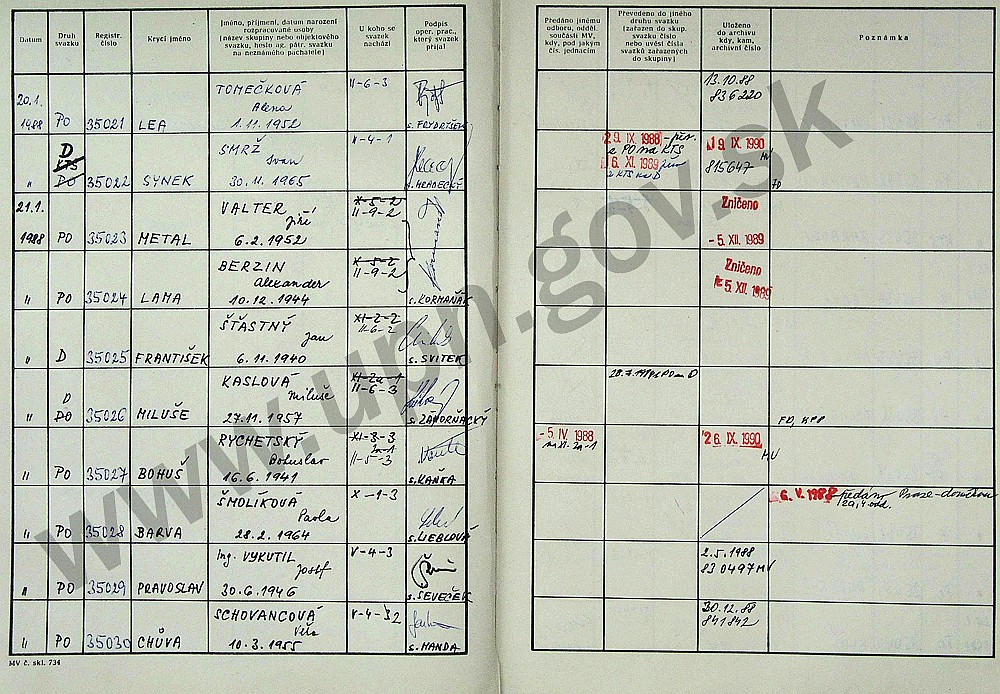 Datum
Druh svazku
Registr. číslo
Krycí jméno
Jméno, příjmení, datum narození rozpracované osoby (název skupiny nebo objektového svazku, heslo ag. pátr. svazku na neznámého pachatele)
U koho se svazek nachází
Podpis oper. prac., který svazek přijal
Předáno jinému odboru, odděl. součásti MV, kdy, pod jakým čís. jednacím
Převedeno do jiného druhu svazku (zařazen do skup. svazku číslo nebo uvést čísla svazků zařazených do skupiny)
Uloženo do archivu kdy, kam, archivní číslo
Poznámka
20.1. 1988 PO 35021 LEA
TOMEČKOVÁ Alena
1.11.1952
II-6-3
s. FRYDRYŠEK
13.10.88
836220
" D KTS DO 35022 SYNEK
SMRŽ Ivan
30.11.1965
X-4-1
s. HRADECKÝ
29. IX. 1988
z PO na KTS
6. XI. 1989
z KTS na D
19. IX. 1990
815647 MV
FD
21.1. 1988 PO 35023 METAL
VALTER Jiří
6.2.1952
X-5-2
II-9-2
Zničeno
-5. XII. 1989
" PO 35024 LAMA
BERZIN Alexander
10.12.1944
X-5-2
II-9-2
s. KORMAŇÁK
Zničeno
-5. XII. 1989
" D 35025 FRANTIŠEK
ŠŤASTNÝ Jan
6.11.1940
XI-2-2
II-6-2
s. SVITEK
" D DO 35026 MILUŠE
KASLOVÁ Miluše
27.11.1957
XI-2a-1
II-6-3
s. ZÁHORŇACKÝ
FD, KPP
" PO 35027 BOHUŠ
RYCHETSKÝ Bohuslav
16.6.1941
XI-3-3
2a-1
II-5-3
s. KAŇKA
-5. IV. 1988
na XI-2a-1
26. IX. 1990
MV
" PO 35028 BARVA
ŠMOLÍKOVÁ Pavla
28.2.1964
X-1-3
s. LIEBLOVÁ
6. V. 1988 předáno Praze-
" PO 35029 PRAVOSLAV
Ing. VYKUTIL Josef
30.6.1946
V-4-3
s. ŠEVEČEK
2.5.1988
830497 MV
" PO 35030 CHŮVA
SCHOVANCOVÁ Věra
10.3.1955
V-4-32
s. HANDA
30.12.88
841842
MV č. skl. 734
www.upn.gov.sk